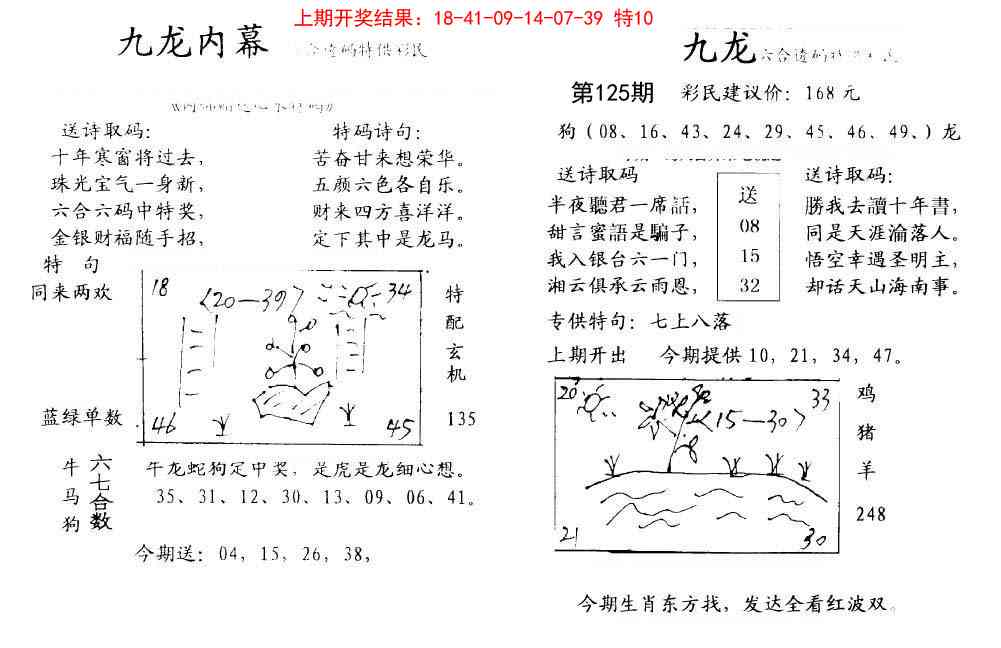 上期开奖结果：18-41-09-14-07-39 特10
九龙内幕
码特供彩民
送诗取码：
十年寒窗将过去，
珠光宝气一身新，
六合六码中特奖，
金银财福随手招，
特码诗句：
苦奋甘来想荣华。
五颜六色各自乐。
财来四方喜洋洋。
定下其中是龙马。
特 句
同来两欢
蓝绿单数
18
〈20—39〉
34
46
45
特
配
玄
机
135
牛
马
狗
六七合数
牛龙蛇狗定中奖，是虎是龙细心想。
35、31、12、30、13、09、06、41。
今期送：04，15，26，38，
九龙
第125期 彩民建议价：168元
狗（08、16、43、24、29、45、46、49、）龙
送诗取码
半夜聽君一席話，
甜言蜜語是騙子，
我入银台六一门，
湘云俱承云雨恩，
送
08
15
32
送诗取码：
勝我去讀十年書，
同是天涯淪落人。
悟空幸遇圣明主，
却话天山海南事。
专供特句：七上八落
上期开出 今期提供10，21，34，47。
20
〈15—30〉
33
21
30
鸡
猪
羊
248
今期生肖东方找，发达全看红波双。